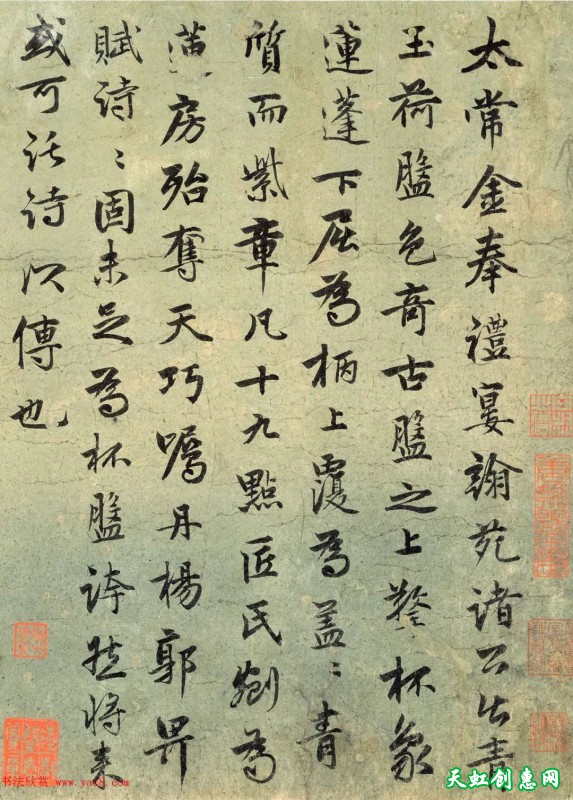 太常金奉禮宴翰苑諸公出青
玉荷盤色奇古盤之上擎杯象
蓮蓬下屈為柄上覆為蓋〻青
質而紫章凡十九點匠氏劚為
蓮房殆奪天巧囑丹楊郭畀
賦詩〻固未足為杯盤誇然將來
或可託詩以傳也
书法欣赏 www.yac8.com
天虹创惠网